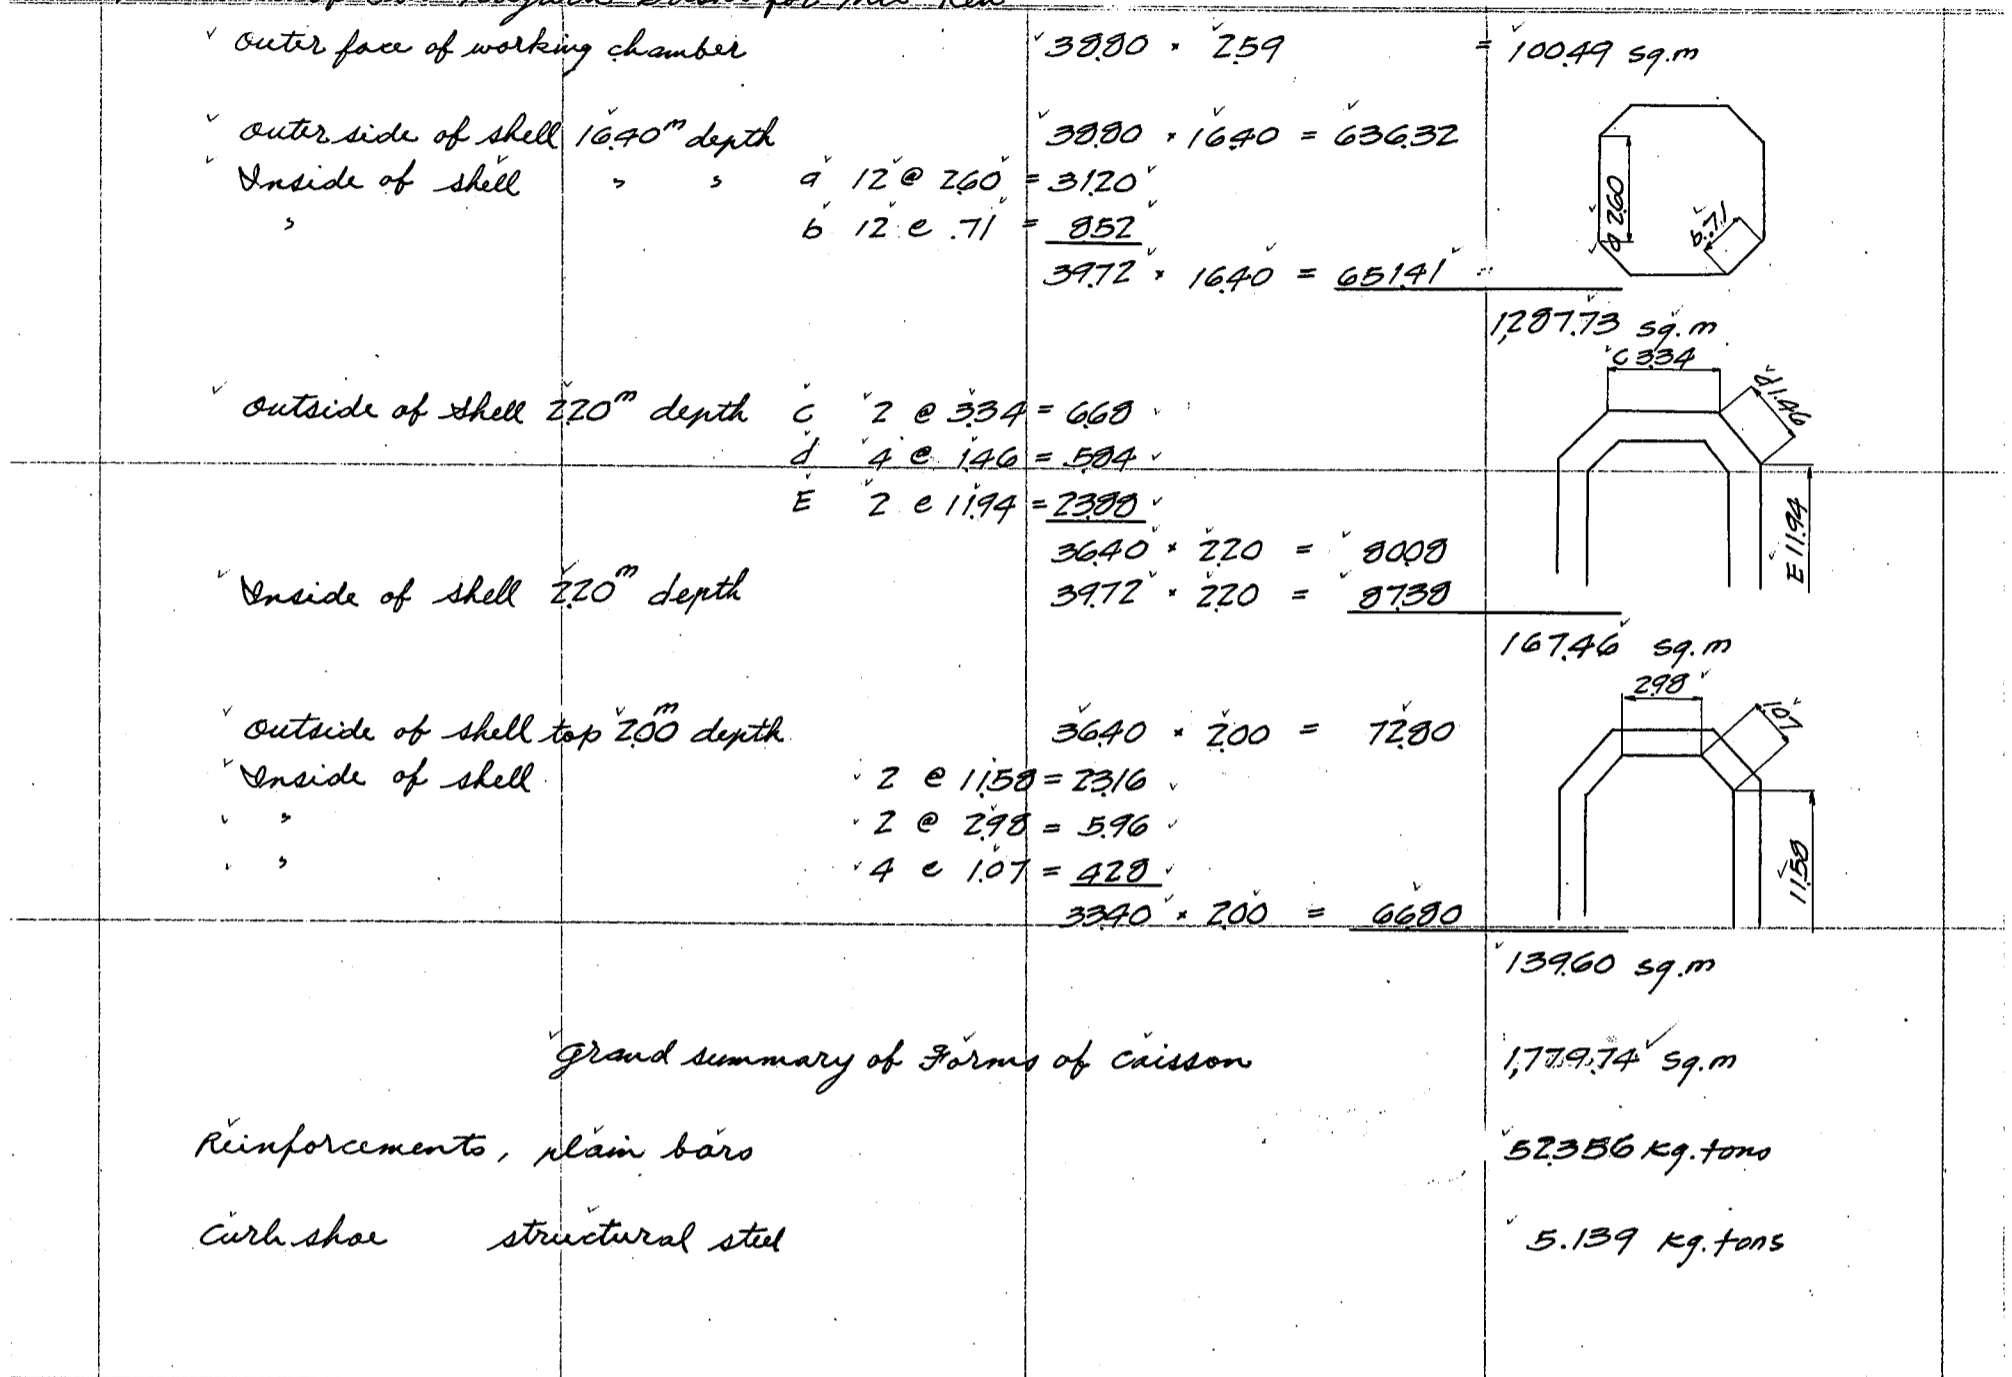 for Mie Ken
Outer face of working chamber 38.80 × 2.59 = 100.49 sq.m
Outer side of shell 16.40m depth 38.80 × 16.40 = 636.32
Inside of shell " " a 12 @ 2.60 = 31.20
" b 12 @ .71 = 8.52
39.72 × 16.40 = 651.41
a 2.60
b .71
1,287.73 sq.m
C 3.34
d 1.46
Outside of shell 2.20m depth c 2 @ 3.34 = 6.68
d 4 @ 1.46 = 5.84
E 2 @ 11.94 = 23.88
E 11.94
36.40 × 2.20 = 80.08
Inside of shell 2.20m depth 39.72 × 2.20 = 87.38
167.46 sq.m
2.98
1.07
Outside of shell top 2.00m depth 36.40 × 2.00 = 72.80
Inside of shell 2 @ 11.58 = 23.16
" 2 @ 2.98 = 5.96
" 4 @ 1.07 = 4.28
11.58
33.40 × 2.00 = 66.80
139.60 sq.m
Grand summary of Forms of Caisson 1,779.74 sq.m
Reinforcements, plain bars 52.356 kg.tons
Curb shoe structural steel 5.139 kg.tons